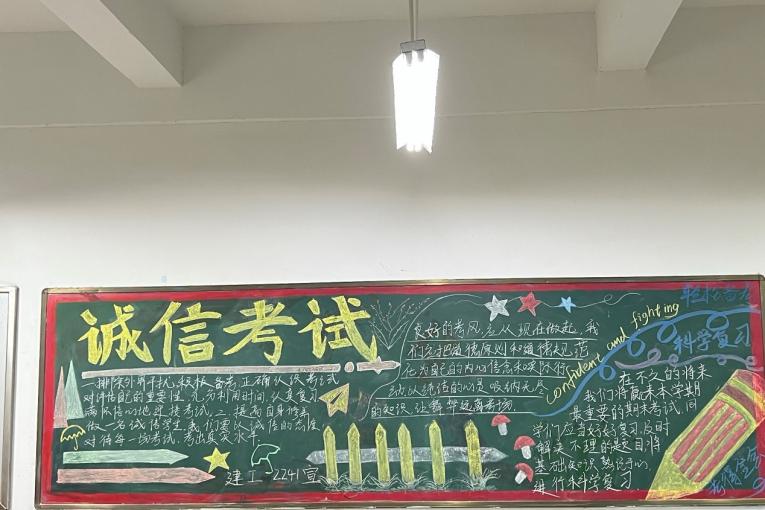 诚信考试
一、排除外界干扰,积极备考,正确认识考试
对评估自己的重要性,充分利用时间,认真复习
满怀信心地迎接考试。二、提高自身修养
做一名诚信学生,我们要以诚信的态度
对待每一场考试,考出真实水平
建工-2241宣
良好的考风,应从现在做起,我
们应把道德原则和道德规范
化为自己的内心信念和实际行
纳以纯洁的心灵吸纳无尽
的知识,让舞弊远离考场.
confident and fighting
科学复习
在不久的将来
我们将赢来本学期
最重要的期末考试,同
学们应当好好复习,及时
解决不理的题目,将
基础知识熟记于心,
进行科学复习